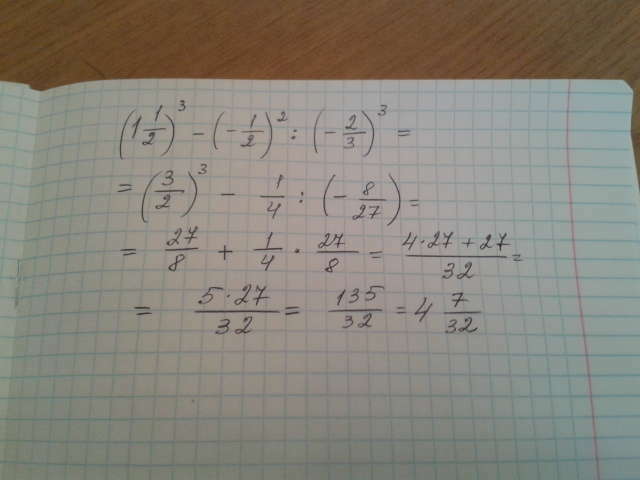 (1 1/2)³ − (− 1/2)² : (− 2/3)³ =
= (3/2)³ − 1/4 : (− 8/27) =
= 27/8 + 1/4 · 27/8 = (4·27 + 27)/32 =
= (5·27)/32 = 135/32 = 4 7/32